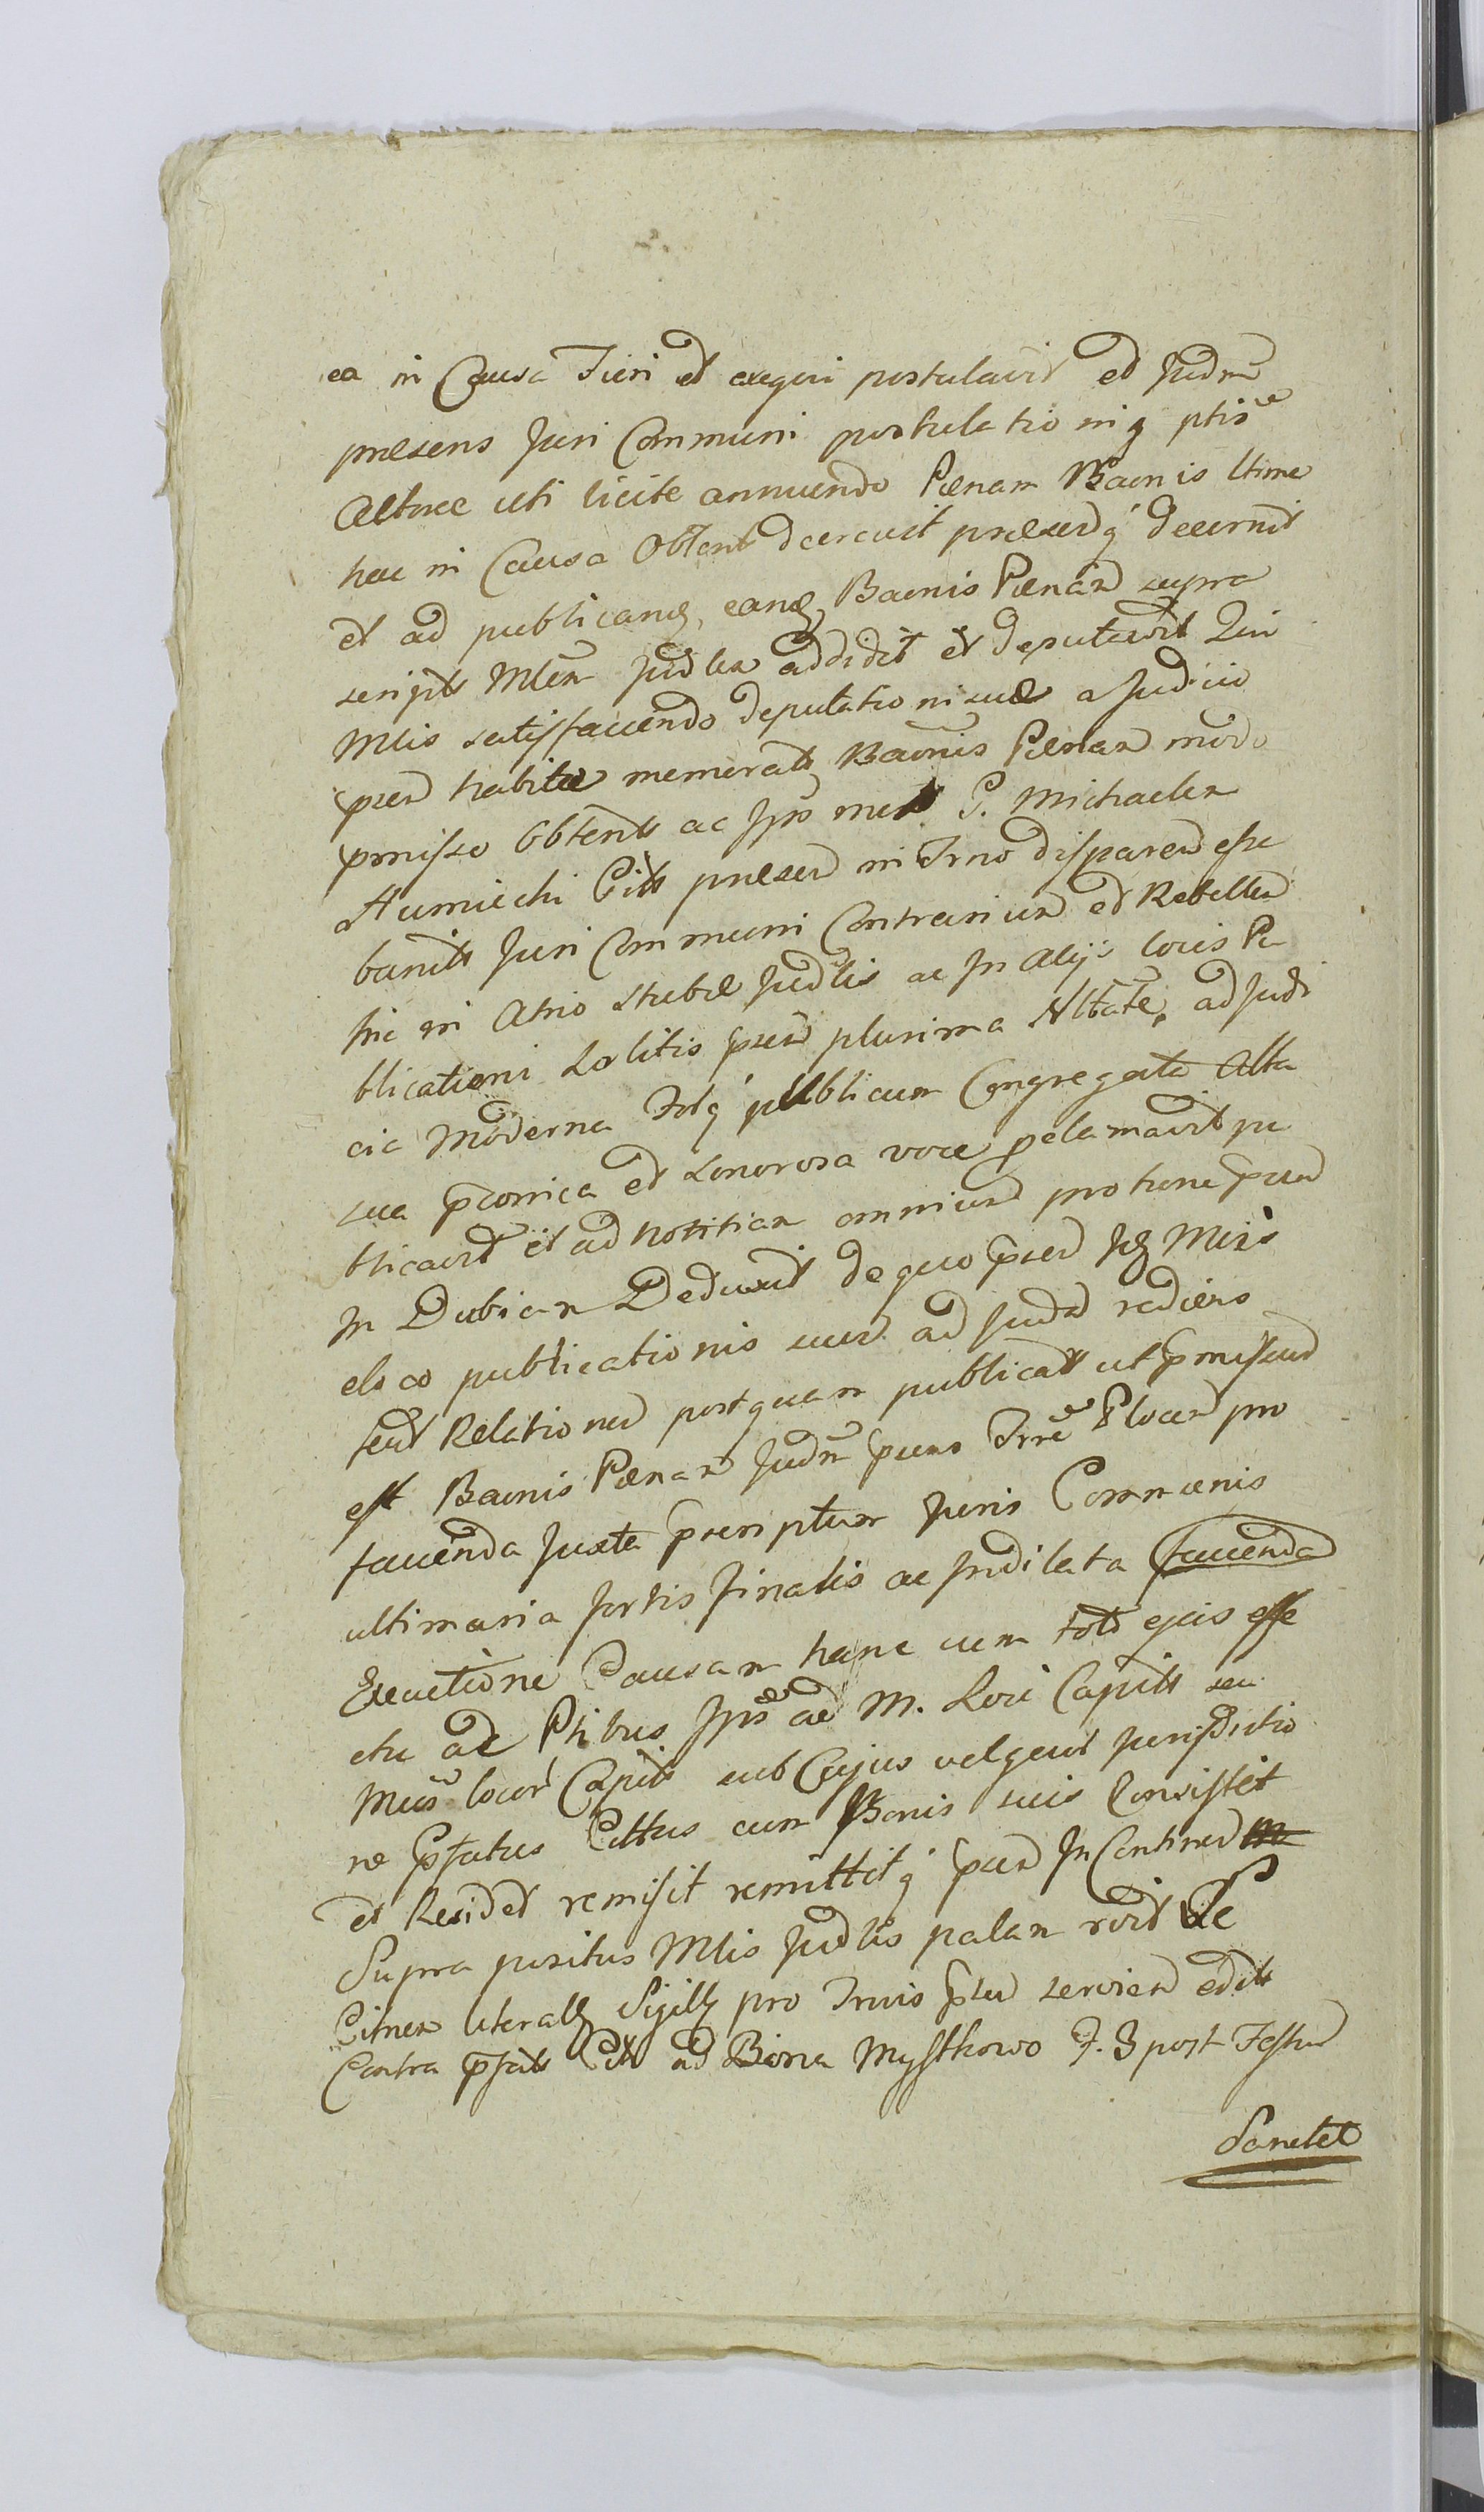 ea in Causa Fieri et exequi postulavit et Judm
praesens Juri Communi postulationiq ptis
Actoree uti licite annuendo Paenam Baonis ltime
hac in Causa Obtent decrevit praesenq decernit
et ad publicand, eand Baonis Paenam supra
script Mlem Judlem addidit et deputavit Qui
Mlis satisfaciendo deputationi suae a Judicio
psen habitae memorats Baonis Paenam modo
pmisso Obtents ac Ipm met G. Michaelem
Humiecki Citts praesen in Trno disparen esse
banits Juri Communi Contrarium et Rebellem
hic in Atrio Stubae Judlis ac In Alijs locis Pu
blicationi Solitis psen plurima Nltate, ad Judi
cia Moderna Totq publicum Congregata Alta
sua pconica et Sonorosa voce pclamavit pu
blicavit et ad Notitiam omnium pro tunc psen
In Dubiam Deduxit de quo psen Idq Miris
eloco publicationis suae ad Judm rediens
fecit Relationem postquam publicats ut pmissum
est Baonis Paenam Judm psens Trre Plocen pro
facienda Juxta pscriptum Juris Communis
ultimaria fortis finalis ac Indilata facienda
Executione Causam hanc cum toto ejus effe
ctu ac Ptibus Ips ad M. Loci Capits seu
Mcos locor Capits sub Cujus velgent Jurisdictio
ne pfatus Cittus cum Bonis suis Consistit
et Residet remisit remittitq psen In Continen
Supra positus Mlis Judlis palam rcvit Se
Citnem literalt Sigillt pro Trnis pten servien edits
Contra pfats Citt ad Bona Mystkowo F. 3 post Festum
Sanctae